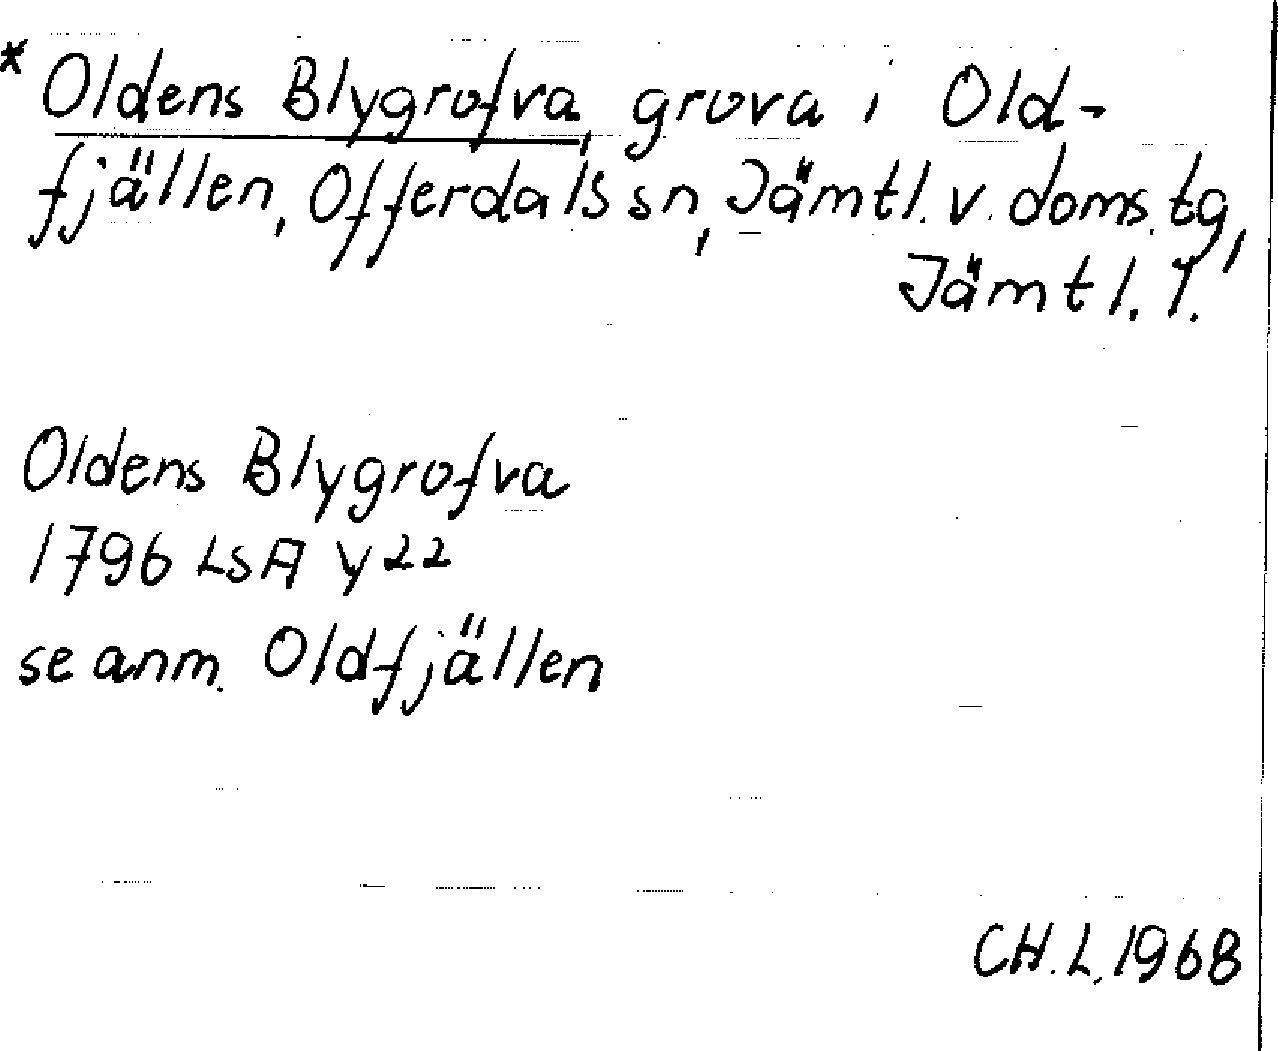 * Oldens Blygrofva, gruva i Old-
fjällen, Offerdals sn, Jämtl. v. doms. tg,
Jämtl. l.
Oldens Blygrofva
1796 LSA Y22
se anm. Oldfjällen
CH. L. 1968